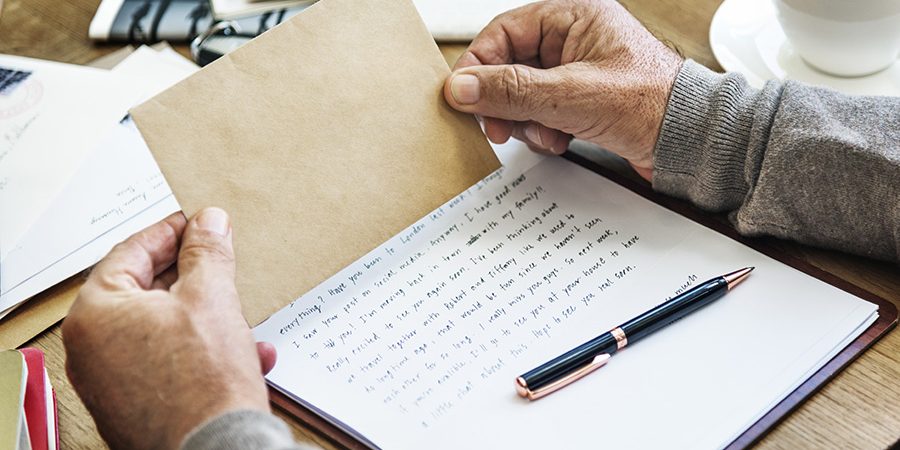 everything? Have you been to London last week? I thought
I saw your post on social media. Anyway, I have good news
to tell you! I'm moving back in town with my family!!
Really excited to see you again soon. I've been thinking about
we travel together with Robert and Tiffany like we used to
do long time ago. that would be fun since we haven't seen
each other for so long. I really miss you guys. So next week,
if you're available I'll go to see you at your house to have
a little chat about this. Hope to see you real soon.
much